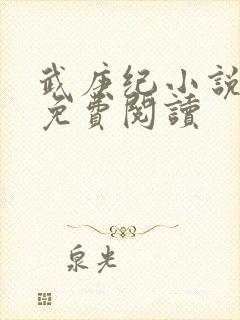 武庚纪小説
免費閱讀
泉光